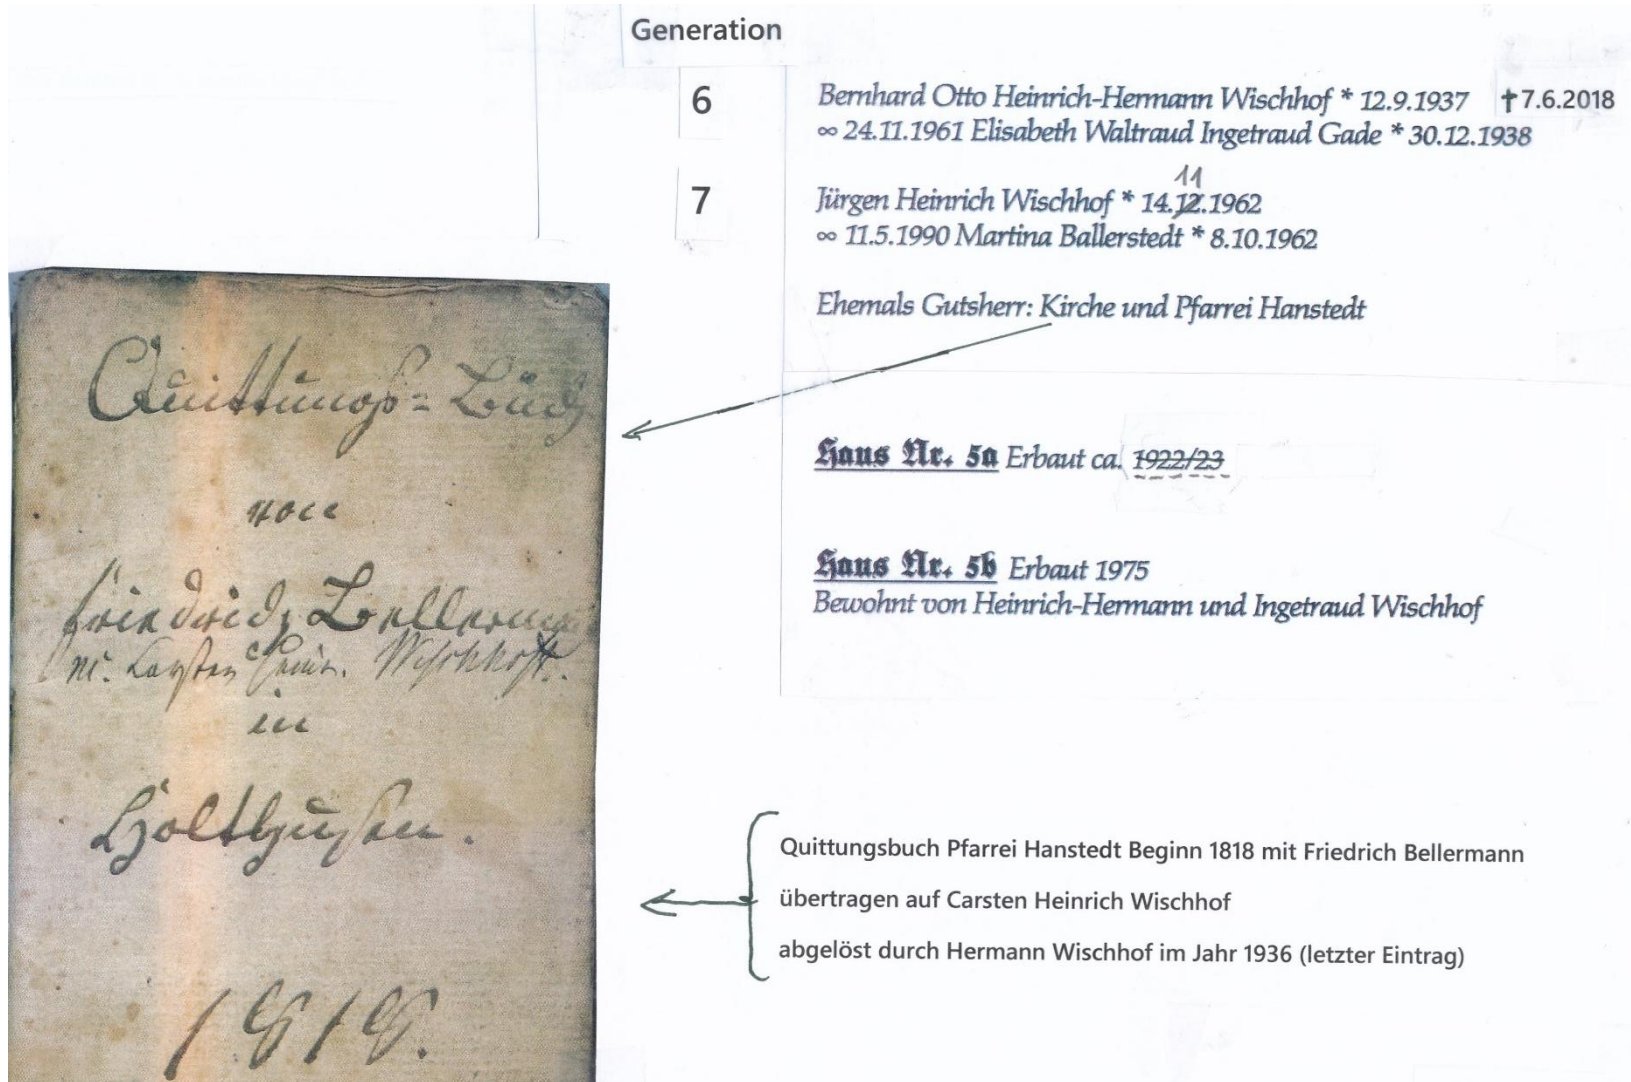 Generation
6
Bernhard Otto Heinrich-Hermann Wischhof * 12.9.1937 †7.6.2018
∞ 24.11.1961 Elisabeth Waltraud Ingetraud Gade * 30.12.1938
11
7
Jürgen Heinrich Wischhof * 14.12.1962
∞ 11.5.1990 Martina Ballerstedt * 8.10.1962
Ehemals Gutsherr: Kirche und Pfarrei Hanstedt
Haus Nr. 5a Erbaut ca. 1922/23
Haus Nr. 5b Erbaut 1975
Bewohnt von Heinrich-Hermann und Ingetraud Wischhof
Quittungs-Buch
von
Friedrich Bellermann
Carsten Heinr. Wischhoff.
in
Holthusen.
1818.
Quittungsbuch Pfarrei Hanstedt Beginn 1818 mit Friedrich Bellermann
übertragen auf Carsten Heinrich Wischhof
abgelöst durch Hermann Wischhof im Jahr 1936 (letzter Eintrag)